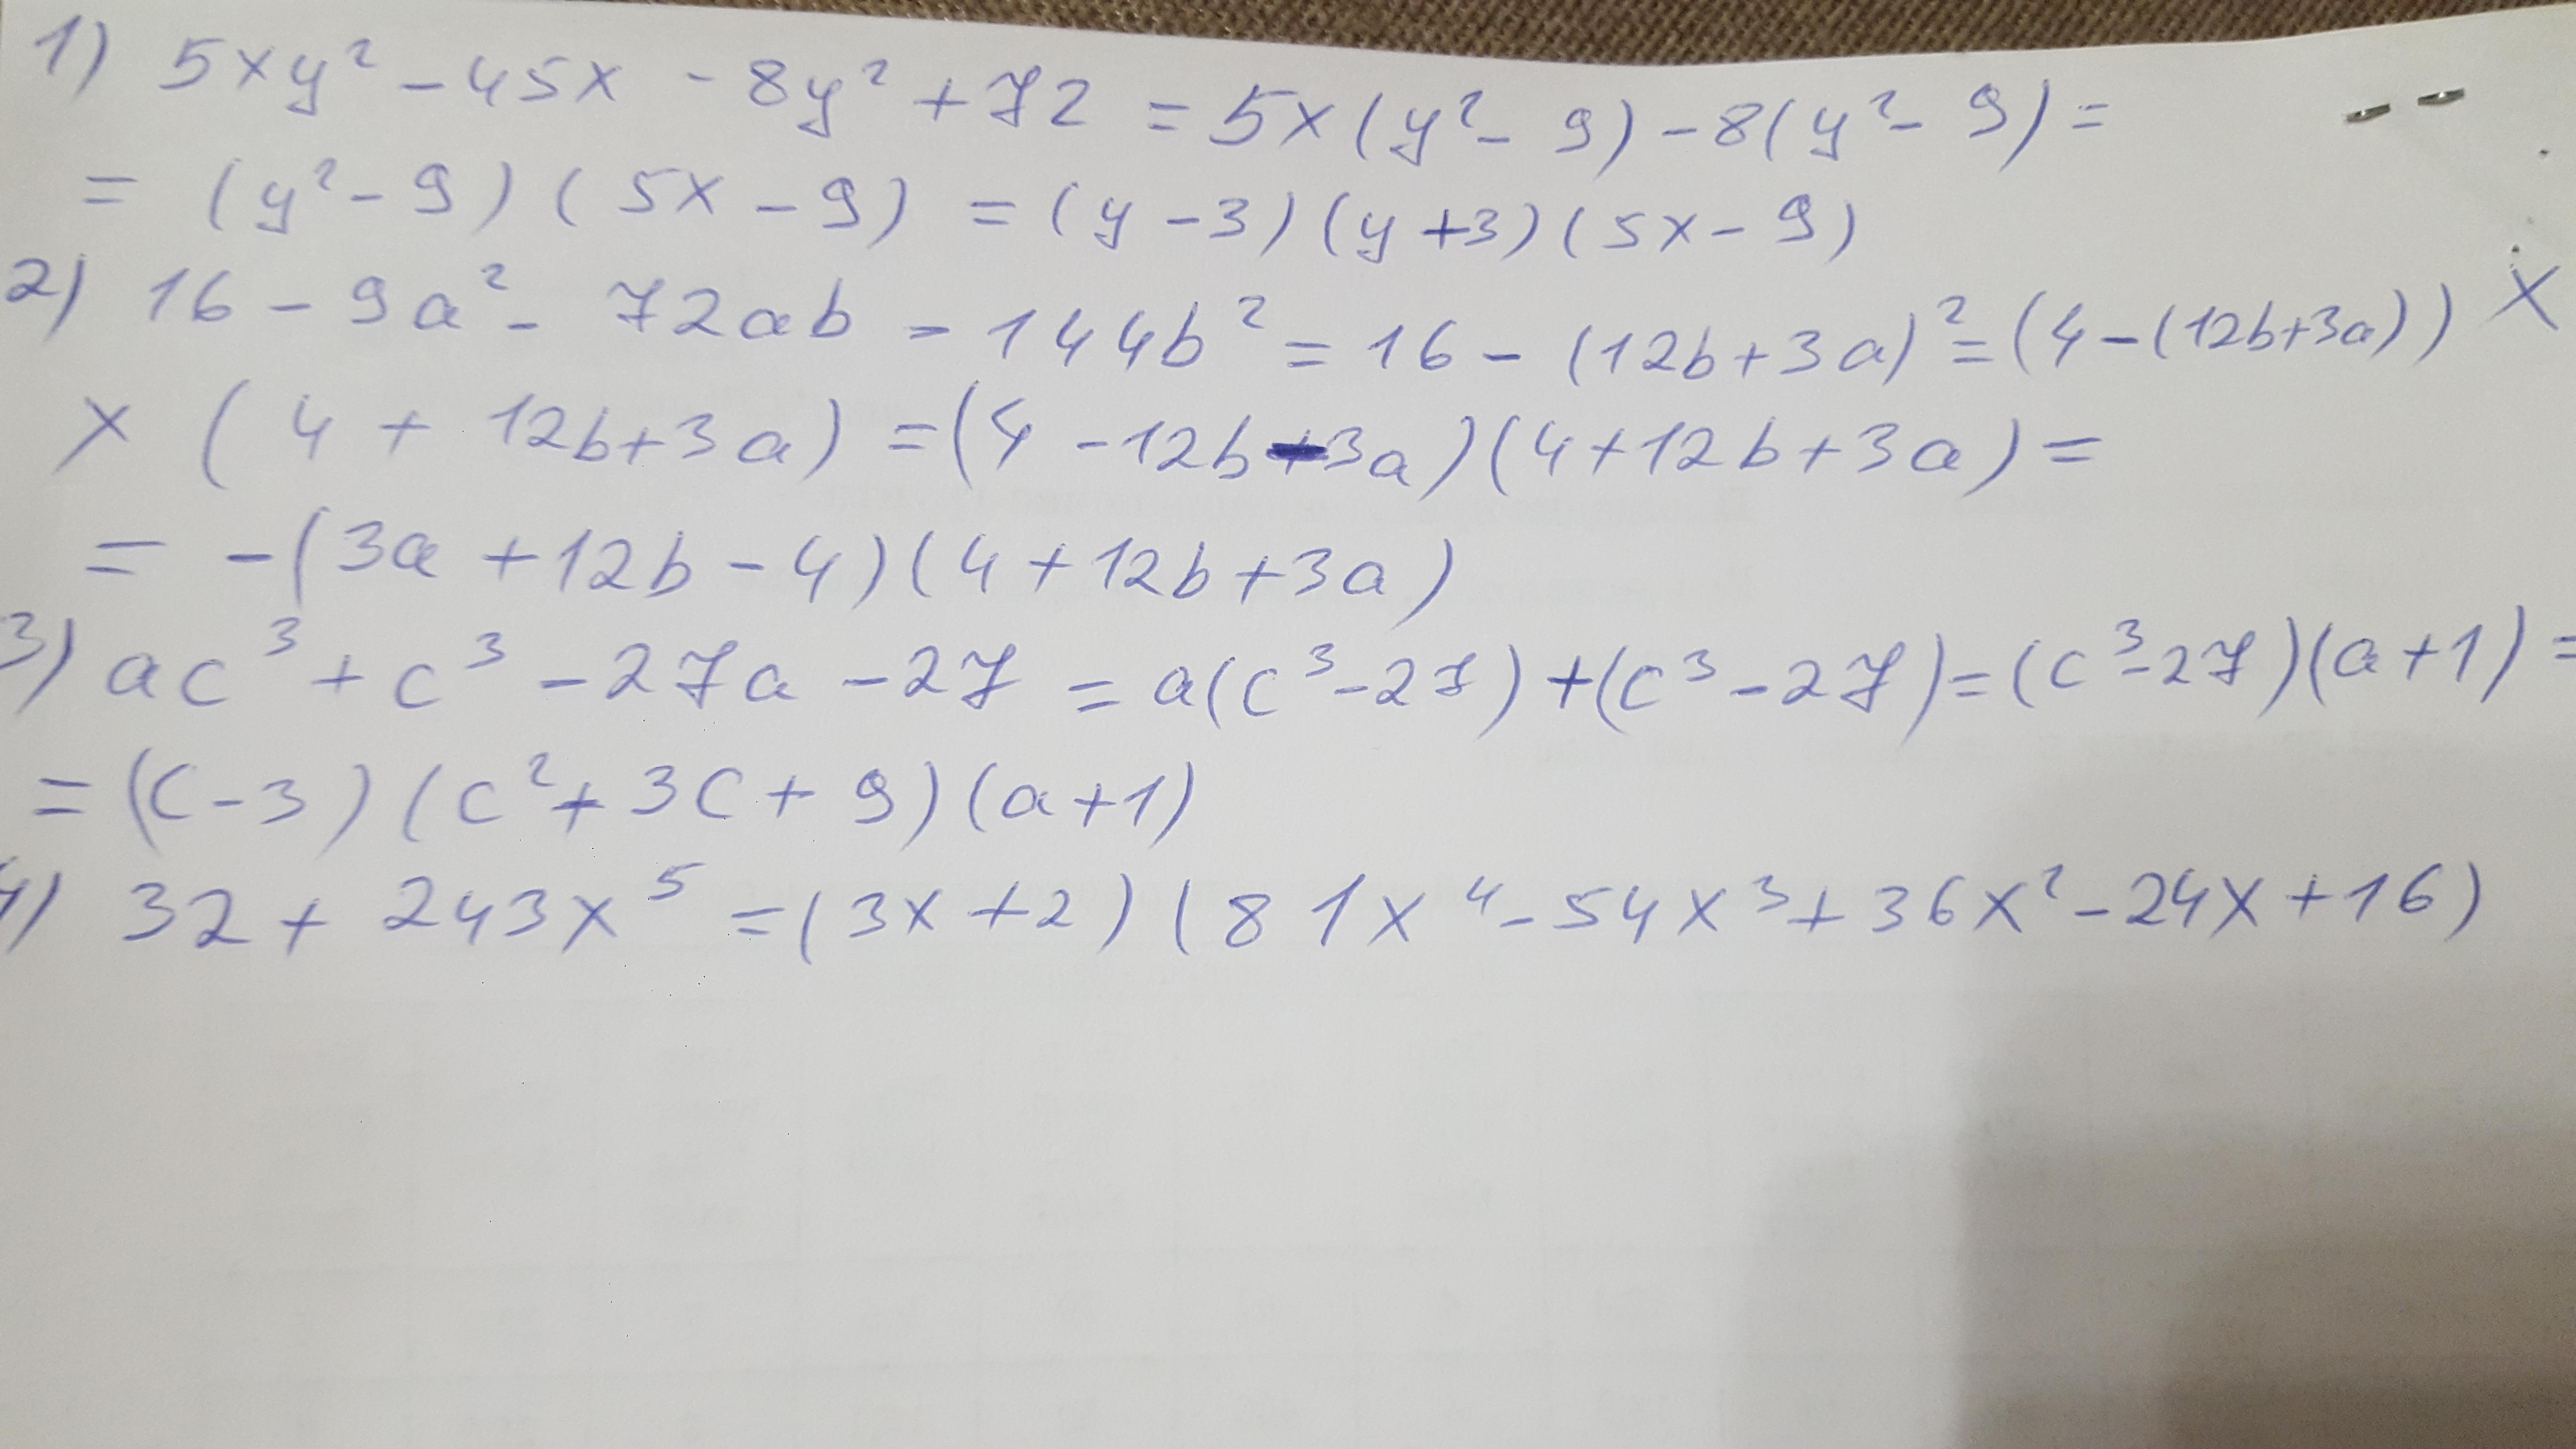 1) 5xy² - 45x - 8y² + 72 = 5x(y² - 9) - 8(y² - 9) =
= (y² - 9)(5x - 9) = (y - 3)(y + 3)(5x - 9)
2) 16 - 9a² - 72ab - 144b² = 16 - (12b + 3a)² = (4 - (12b + 3a)) ×
× (4 + 12b + 3a) = (4 - 12b - 3a)(4 + 12b + 3a) =
= -(3a + 12b - 4)(4 + 12b + 3a)
3) ac³ + c³ - 27a - 27 = a(c³ - 27) + (c³ - 27) = (c³ - 27)(a + 1) =
= (c - 3)(c² + 3c + 9)(a + 1)
4) 32 + 243x⁵ = (3x + 2)(81x⁴ - 54x³ + 36x² - 24x + 16)